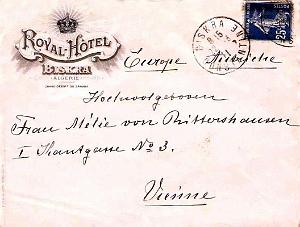 ROYAL-HÔTEL
BISKRA
ALGERIE
BISKRA
25
Europe Autriche
Hochwolgeboven
Frau Mélie von Rittershausen
I Kantgasse No 3.
Vienne